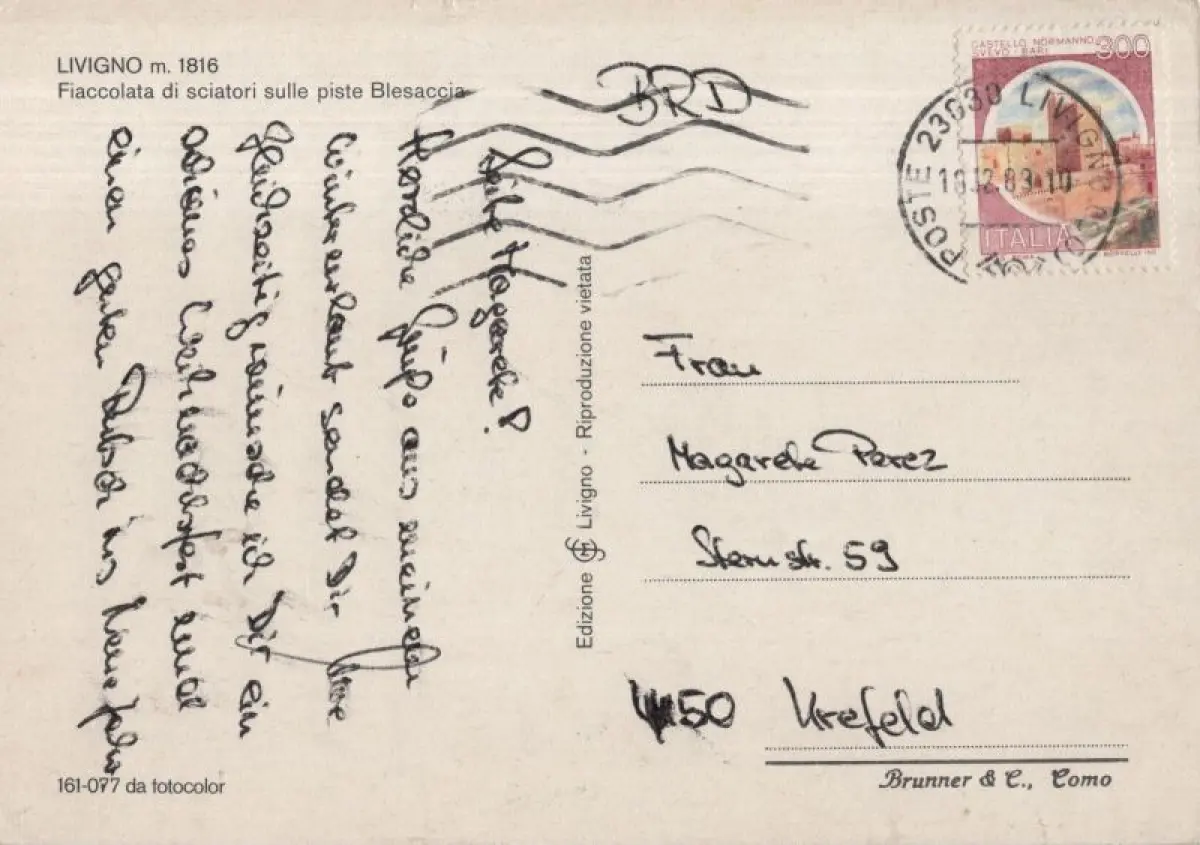 LIVIGNO m. 1816
Fiaccolata di sciatori sulle piste Blesaccia
BRD
CASTELLO NORMANNO
SVEVO - BARI
300
ITALIA
ROMA
POSTE 23030 LIVIGNO
Magarete!
Herzliche Grüße aus meinem
Winterurlaub sendet Dir
Gleichzeitig wünsche ich Dir ein
schönes Weihnachtsfest und
einen guten Rutsch ins neue Jahr
Edizione Livigno - Riproduzione vietata
Frau
Magarete Perez
Sternstr. 59
4150 Krefeld
161-077 da fotocolor
Brunner & C., Como